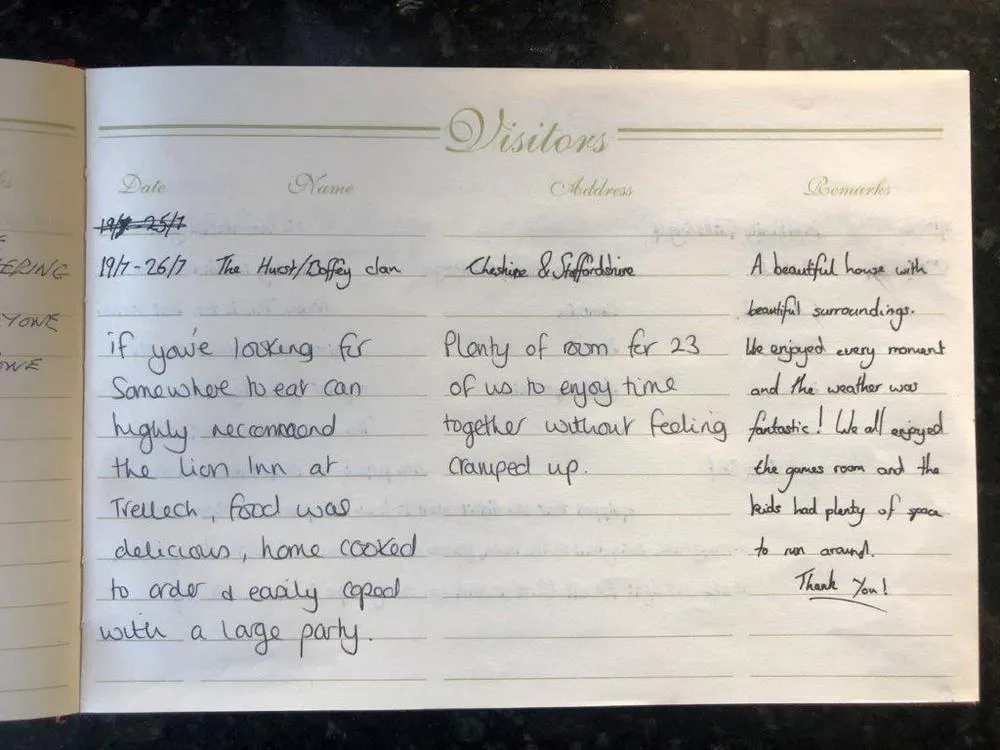 Visitors
Date Name Address Remarks
19/7 - 25/7
19/7 - 26/7 The Hurst/Boffey clan Cheshire & Staffordshire A beautiful house with
beautiful surroundings.
if you're looking for Plenty of room for 23 We enjoyed every moment
Somewhere to eat can of us to enjoy time and the weather was
highly reccommend together without feeling fantastic! We all enjoyed
the Lion Inn at cramped up. the games room and the
Trellech, food was kids had plenty of space
delicious, home cooked to run around.
to order & easily coped Thank You!
with a large party.
ERING
YONE